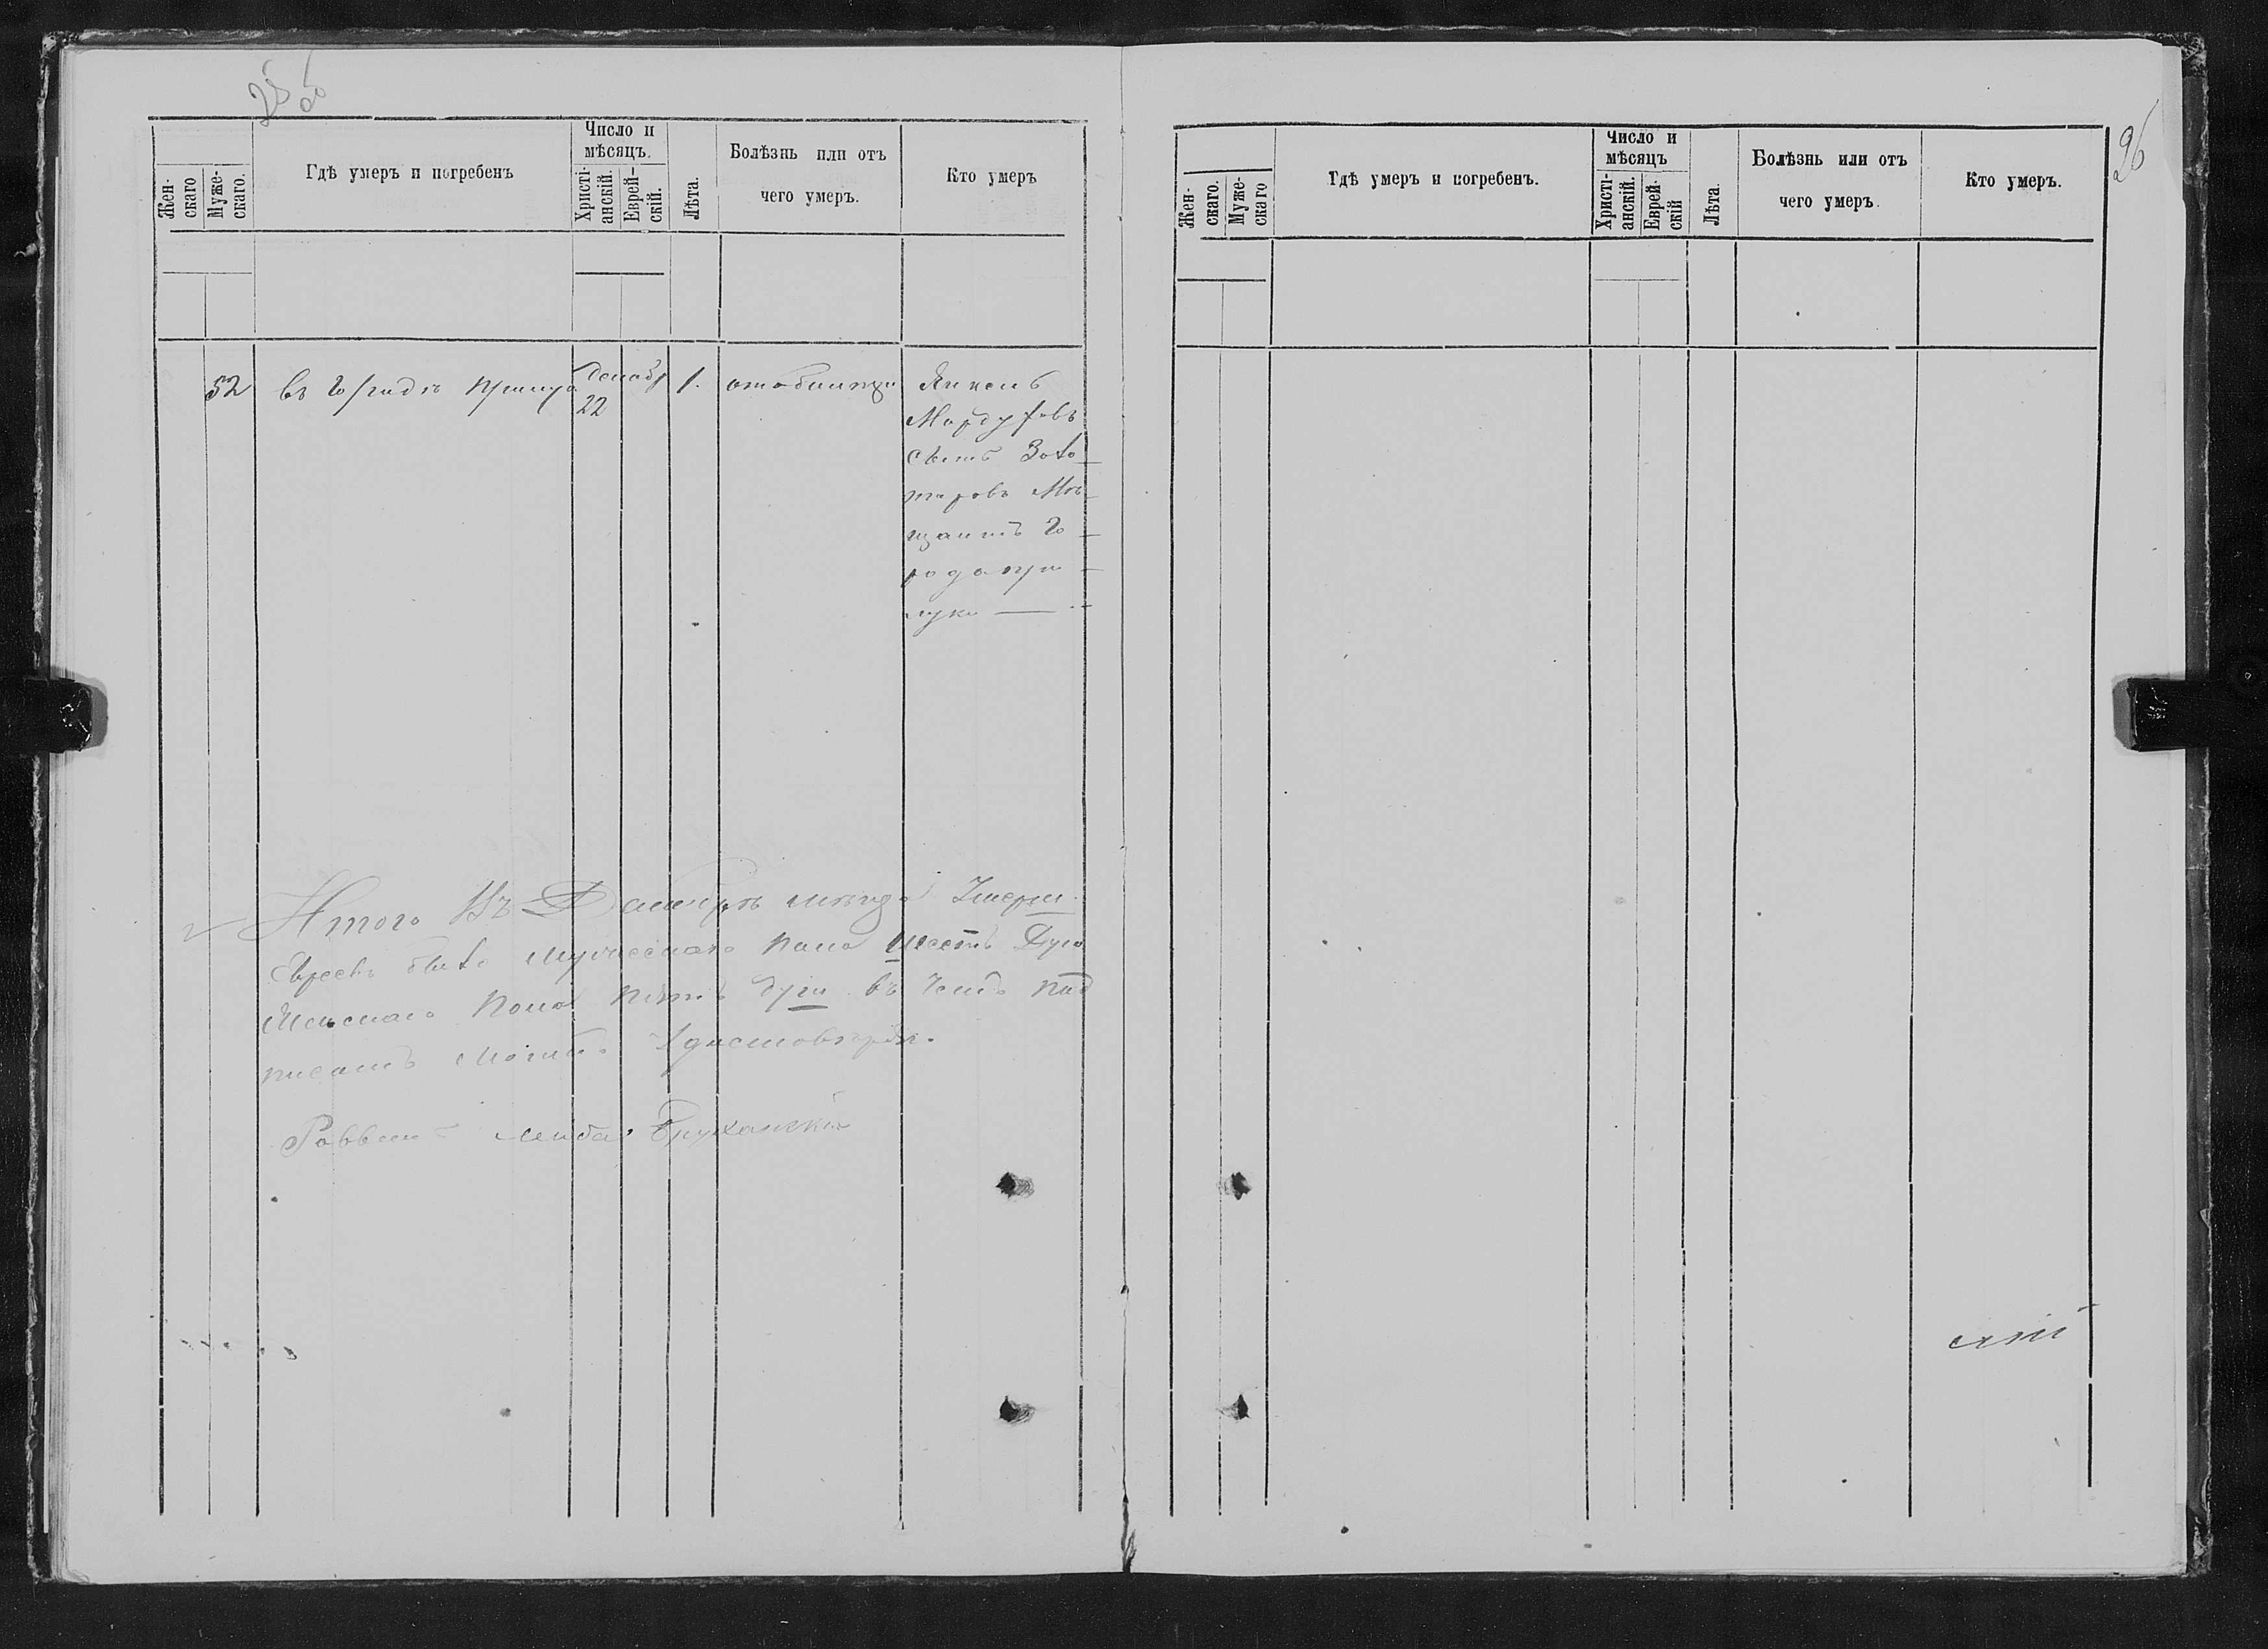 25 об
Жен-
скаго
Муже-
скаго.
Гдѣ умеръ и погребенъ
Число и
мѣсяцъ.
Христі-
анскій.
Еврей-
скій.
Лѣта.
Болѣзнь или отъ
чего умеръ.
Кто умеръ
52 въ городѣ Прилуке Декабр 1.
22
Мордухов
Сынъ Золо-
таровъ Мѣ-
щанинъ го-
рода При-
луки —
Итого Въ Декабрѣ мѣсяцѣ Умерли
Евреевъ было Мужескаго пола шесть Душ
Женскаго пола пять душ въ чемъ под
писомъ моимъ Удостовѣряю.
Раввинъ
26
Жен-
скаго.
Муже-
скаго
Гдѣ умеръ и погребенъ.
Число и
мѣсяцъ
Христі-
анскій.
Еврей-
скій
Лѣта.
Болѣзнь или отъ
чего умеръ.
Кто умеръ.